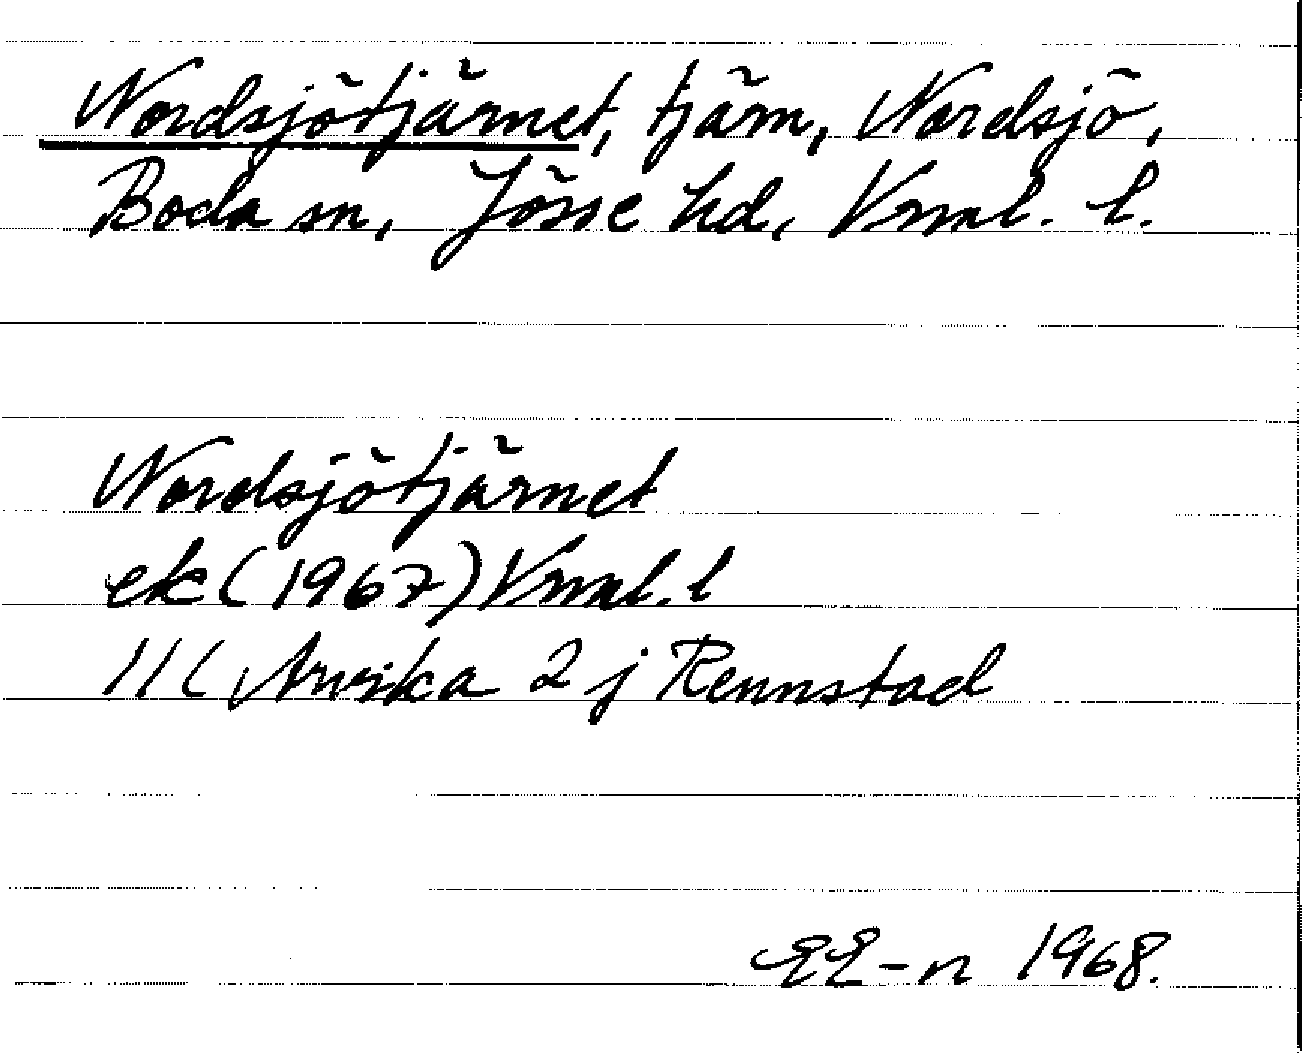 Nordsjötjärnet, tjärn, Nordsjö,
Boda sn, Jösse hd, Vrml. l.
Nordsjötjärnet
ek (1967) Vrml. l
11C Arvika 2 j Rennstad
EE-n 1968.